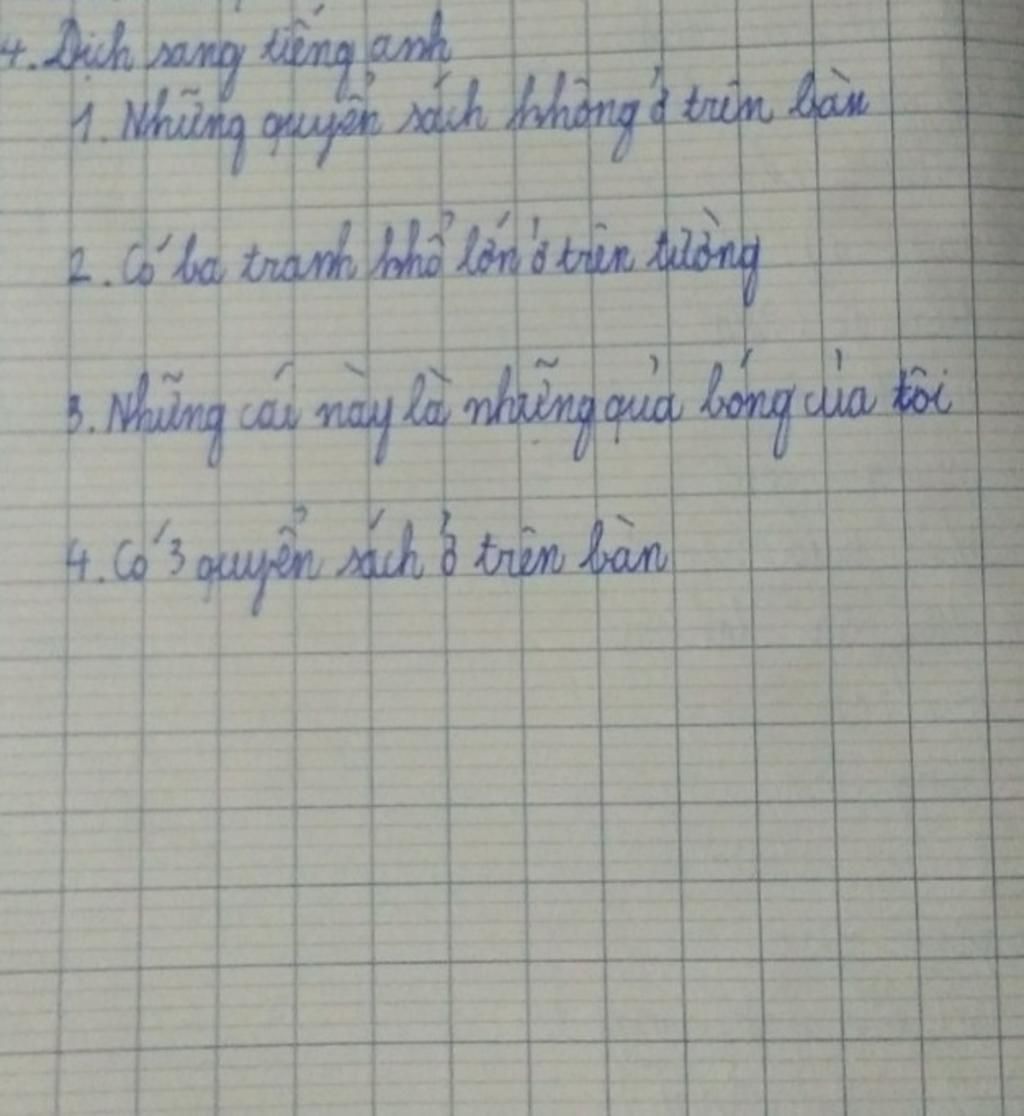 4. Dịch sang tiếng anh
1. Những quyển sách không ở trên bàn
2. Có ba tranh khổ lớn ở trên tường
3. Những cái này là những quả bóng của tôi
4. Có 3 quyển sách ở trên bàn